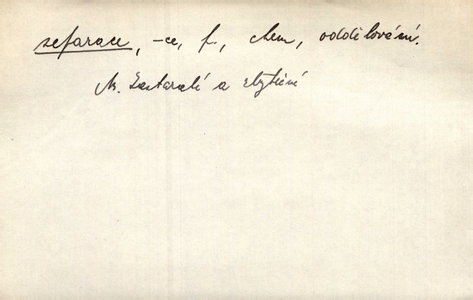 separace, -ce, f., chem, oddělování.
Ms. Zastaralé a zbytečné